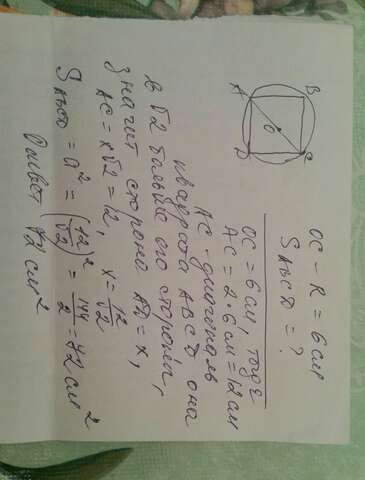 A B
O
D C
OC - R = 6 см
S ABCD = ?
OC = 6 см, тогда
AC = 2 · 6 см = 12 см
AC - диагональ
квадрата ABCD она
в √2 больше его стороны,
значит сторона AD = x,
AC = x√2 = 12, x = 12/√2
S ABCD = a² = (12/√2)² = 144/2 = 72 см²
Ответ 72 см²